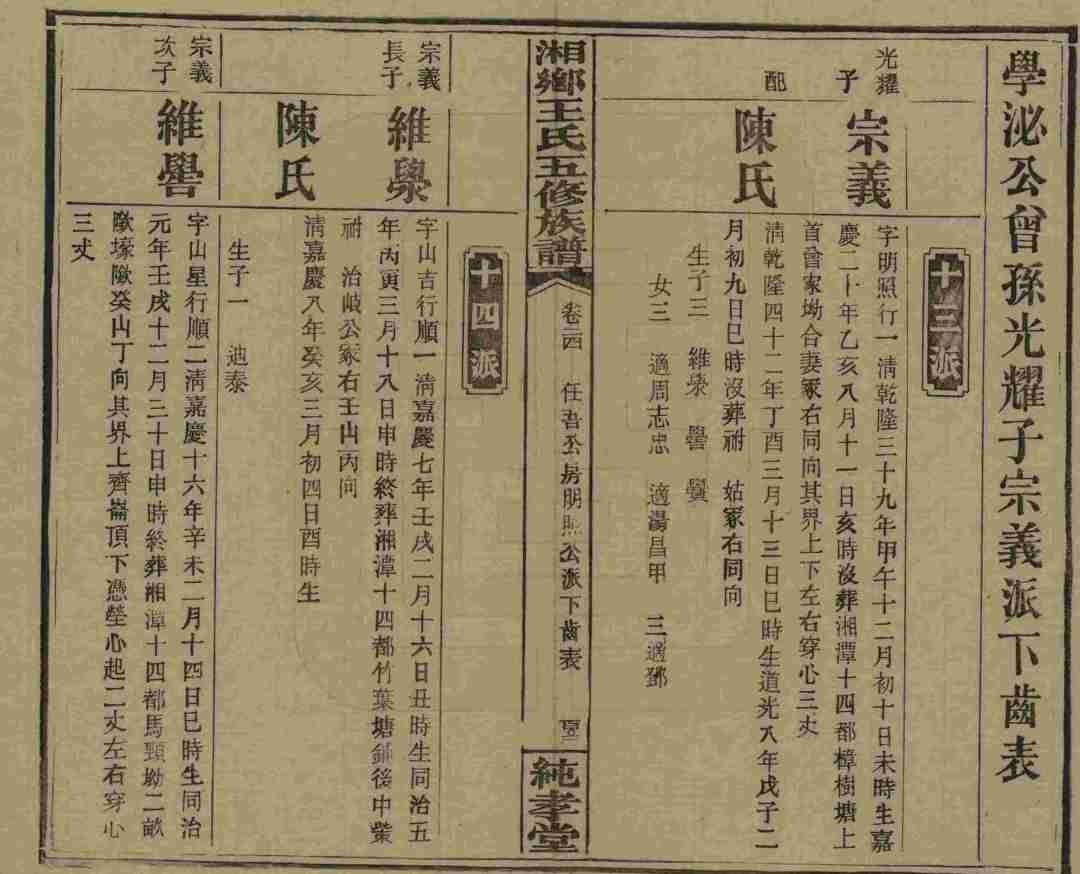 學泌公曾孫光耀子宗義派下齒表
十三派
光耀
子
宗義
字明照行一清乾隆三十九年甲午十二月初十日未時生嘉
慶二十年乙亥八月十一日亥時沒葬湘潭十四都樟樹塘上
首曾家坳合妻冢右同向其界上下左右穿心三丈
配
陳氏
清乾隆四十二年丁酉三月十三日巳時生道光八年戊子二
月初九日巳時沒葬祔 姑冢右同向
生子三 維 嚳
女三 適周志忠 適湯昌甲 三適鄧
湘鄉王氏五修族譜
卷六四 任吾公房明照公派下齒表
純孝堂
十四派
宗義
長子
維
字山吉行順一清嘉慶七年壬戌二月十六日丑時生同治五
年丙寅三月十八日申時終葬湘潭十四都竹葉塘鋪後中塋
祔 治岐公冢右壬山丙向
陳氏
清嘉慶八年癸亥三月初四日酉時生
生子一 迪泰
宗義
次子
維嚳
字山星行順二清嘉慶十六年辛未二月十四日巳時生同治
元年壬戌十二月三十日申時終葬湘潭十四都馬頸坳二畝
歐壕歐癸山丁向其界上齊崙頂下憑塋心起二丈左右穿心
三丈